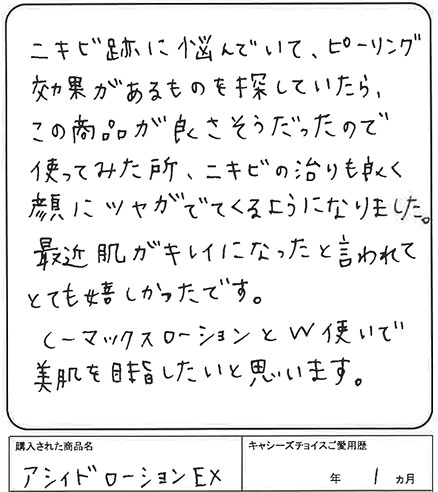 ニキビ跡に悩んでいて、ピーリング
効果があるものを探していたら、
この商品が良さそうだったので
使ってみた所、ニキビの治りも良く
顔にツヤがでてくるようになりました。
最近肌がキレイになったと言われて
とても嬉しかったです。
Cーマックスローションと W使いで
美肌を目指したいと思います。
購入された商品名
アシィドローションEX
キャシーズチョイスご愛用歴
年 1 ヵ月